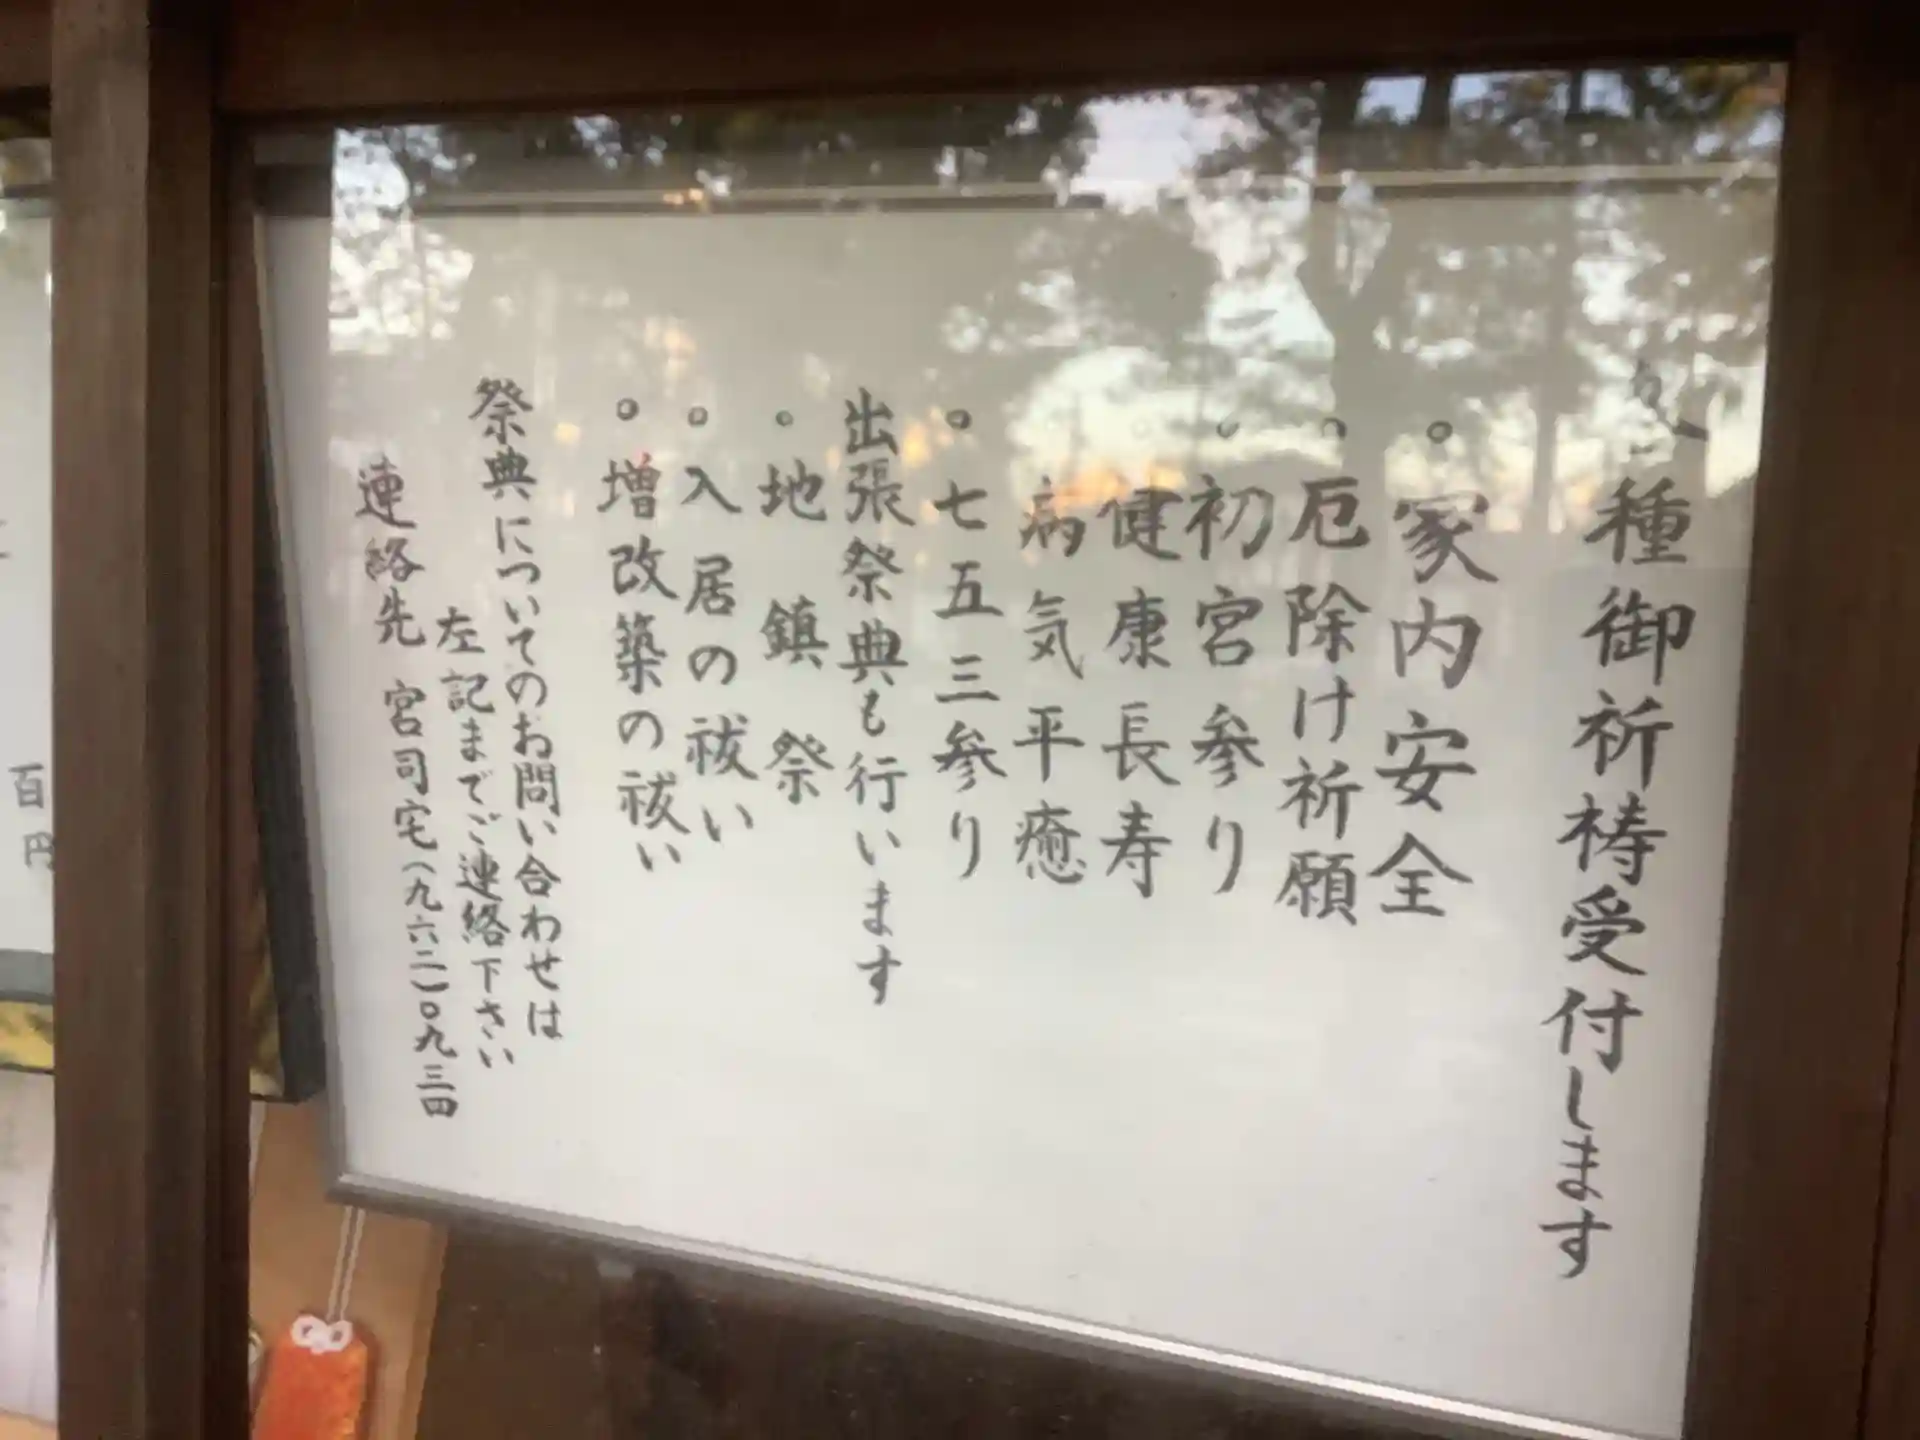 各種御祈祷受付します
。家内安全
。厄除け祈願
。初宮参り
。健康長寿
。病気平癒
。七五三参り
出張祭典も行います
。地鎮祭
。入居の祓い
。増改築の祓い
祭典についてのお問い合わせは
左記までご連絡下さい
連絡先 宮司宅(九六二一〇九三四
百円